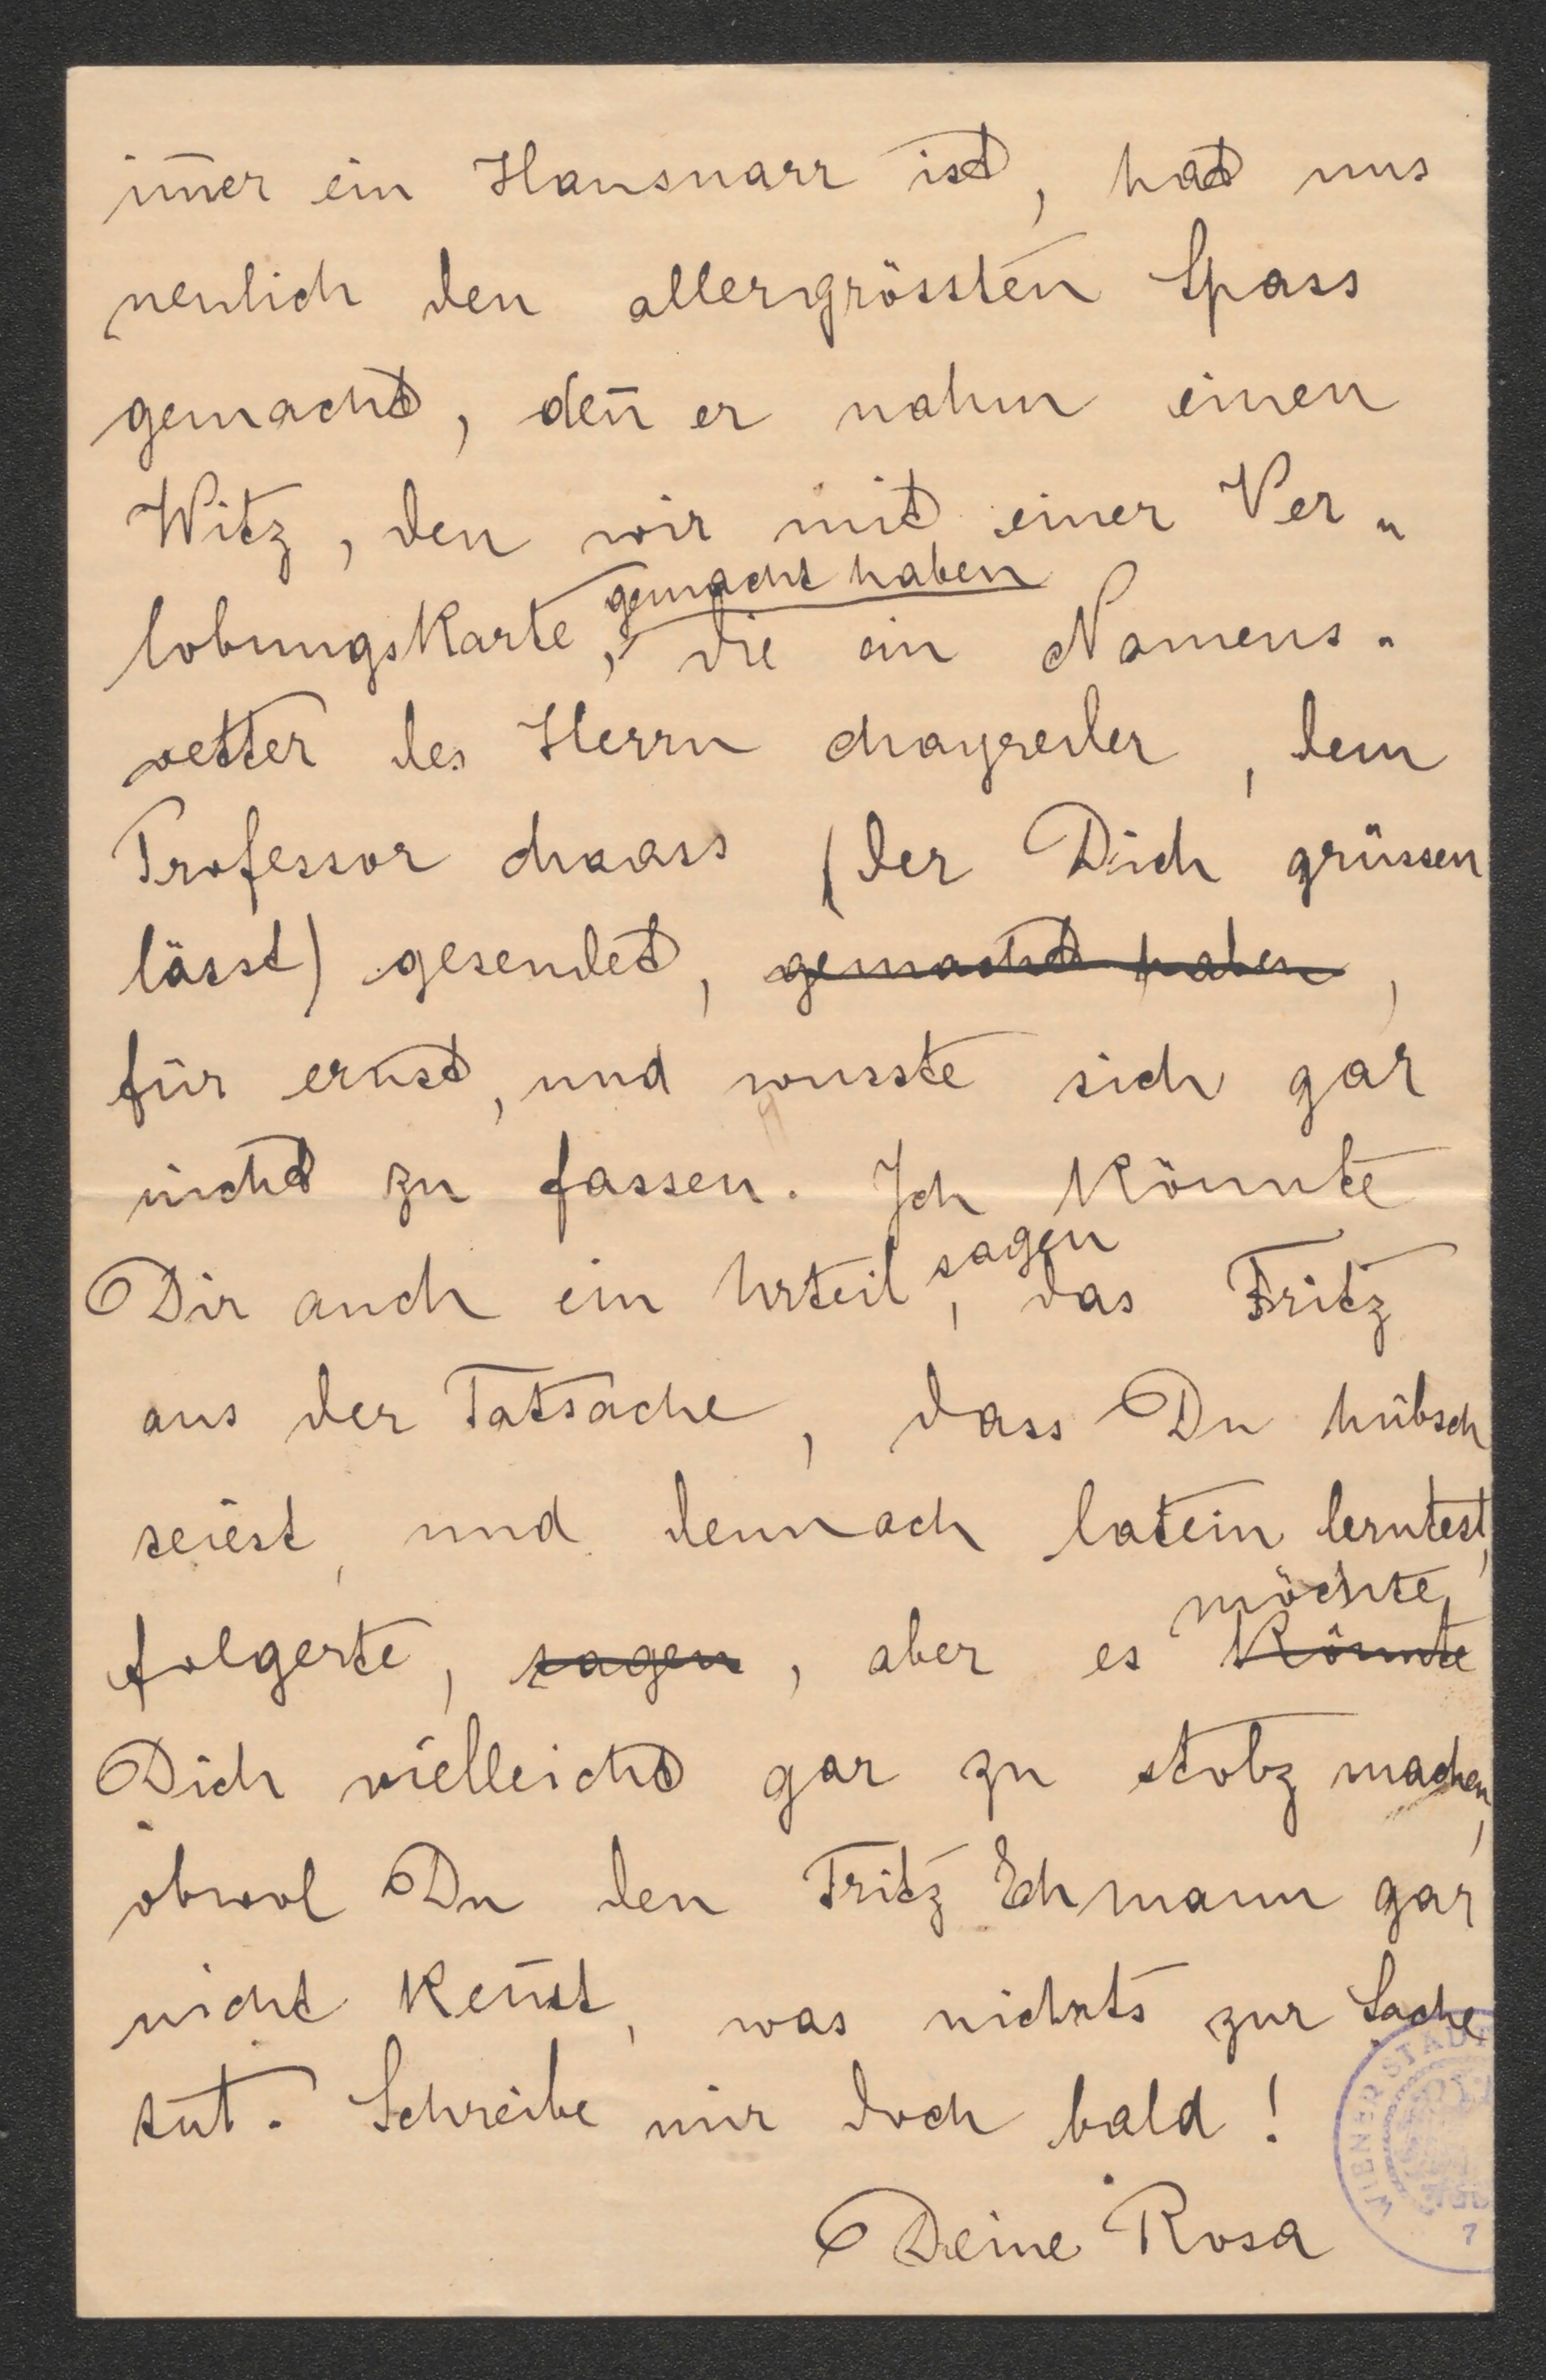 im̄er ein Hansnarr ist, hat uns
neulich den allergrössten Spass
gemacht, den̄ er nahm einen
Witz, den wir mit einer Ver„
gemacht haben
lobungskarte, die ein Namens„
vetter des Herrn Mayreder, dem
Professor Maass (der Dich grüssen
lässt) gesendet, gemacht haben,
für ernst, und wusste sich gar
nicht zu fassen. Ich könnte
sagen
Dir auch ein Urteil, das Fritz
aus der Tatsache, dass Du hübsch
seiest, und dennoch latein lerntest,
möchte
folgerte, sagen, aber es könnte
Dich vielleicht gar zu stolz machen,
obwol Du den Fritz Ehmann gar
nicht ken̄st, was nichts zur Sache
tut. Schreibe mir doch bald!
Deine Rosa
WIENER STADT
7